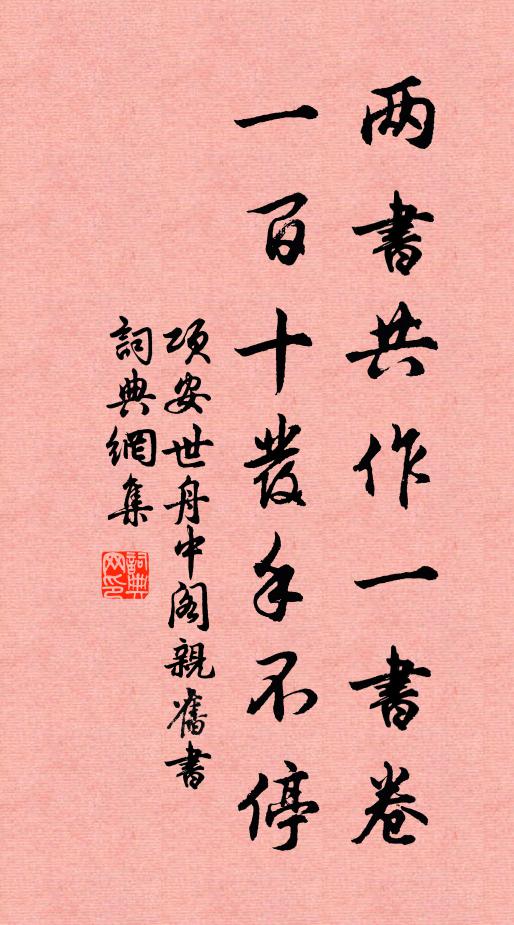 两書共作一書卷
一百十發手不停
項安世舟中閣親舊書
詞典網集
詞典網印